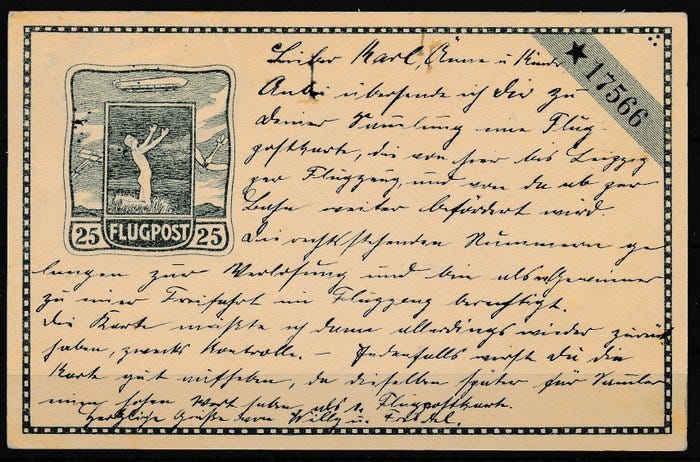 ★ 17566
25 FLUGPOST 25
Lieber Karl, Änne u Kinder
Anbei übersende ich Dir zu
Deiner Sammlung eine Flug-
postkarte, die von hier bis Leipzig
per Flugzeug, und von da ab per
Bahn weiter befördert wird.
Die rechtsstehenden Nummern ge
langen zur Verlosung und bin als Gewinner
zu einer Freifahrt im Flugzeug berechtigt.
Die Karte müßte ich dann allerdings wieder zurück
haben, zwecks Kontrolle. – Jedenfalls wirst Du die
Karte gut aufheben, da dieselben später für Sammler
einen hohen Wert haben, als 1. Flugpostkarte.
Herzliche Grüße von Willy u.